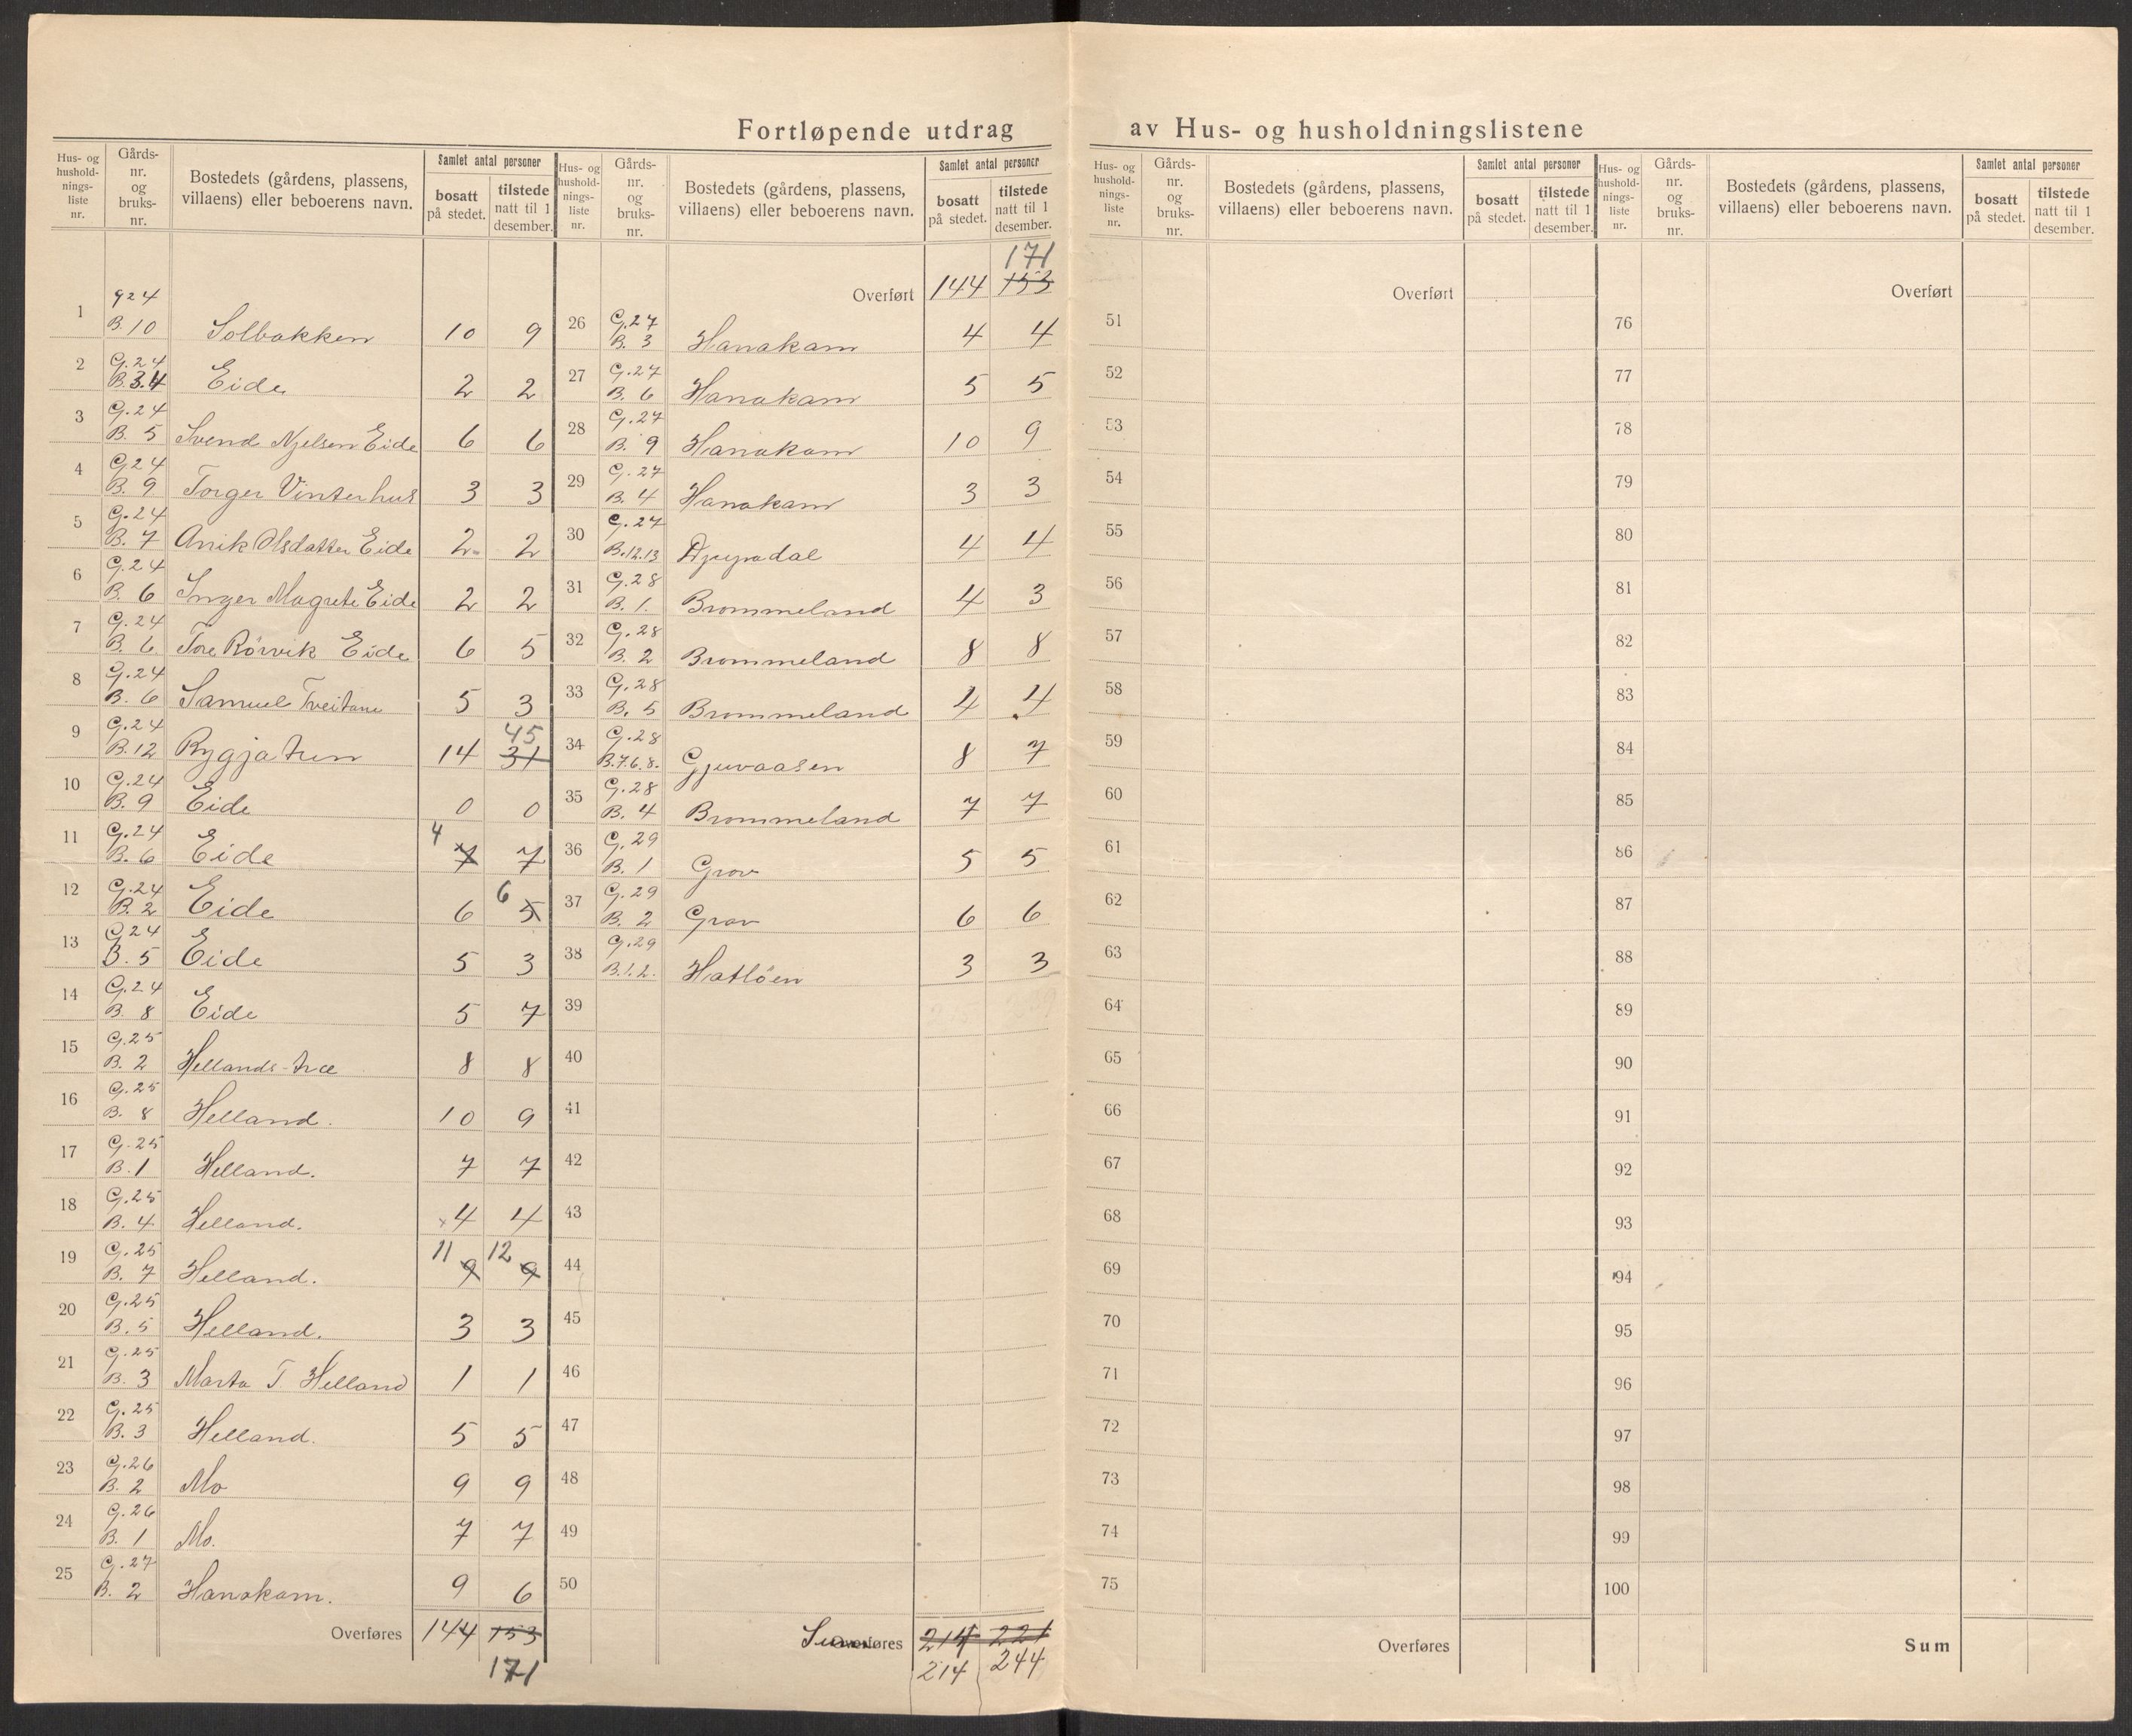 Fortløpende utdrag av Hus- og husholdningslistene
Hus- og hushold-nings-liste nr. | Gårds-nr. og bruks-nr. | Bostedets (gårdens, plassens, villaens) eller beboerens navn. | Samlet antal personer | bosatt på stedet. | tilstede natt til 1 desember.
1 | 924 B. 10 | Solbakken | 10 | 9
2 | G. 24 B. 3.4 | Eide | 2 | 2
3 | G. 24 B. 5 | Svend Njelsen Eide | 6 | 6
4 | G 24 B. 9 | Torger Vinterhus | 3 | 3
5 | G. 24 B. 7 | Anik Olsdatter Eide | 2 | 2
6 | G. 24 B. 6 | Inger Magrete Eide | 2 | 2
7 | G. 24 B. 6 | Tore Rörvik Eide | 6 | 5
8 | G. 24 B. 6 | Samuel Tveitane | 5 | 3
9 | G. 24 B. 12 | Rygjatun | 14 | 45 31
10 | G. 24 B. 9 | Eide | 0 | 0
11 | G. 24 B. 6 | Eide | 4 7 | 7
12 | G. 24 B. 2 | Eide | 6 | 6 5
13 | G 24 B. 5 | Eide | 5 | 3
14 | G. 24 B. 8 | Eide | 5 | 7
15 | G. 25 B. 2 | Hellands-træ | 8 | 8
16 | G. 25 B. 8 | Helland. | 10 | 9
17 | G. 25 B. 1 | Helland. | 7 | 7
18 | G. 25 B. 4 | Helland. | 4 | 4
19 | G. 25 B. 7 | Helland. | 11 9 | 12 9
20 | G. 25 B. 5 | Helland. | 3 | 3
21 | G. 25 B. 3 | Marta T. Helland | 1 | 1
22 | G. 25 B. 3 | Helland. | 5 | 5
23 | G. 26 B. 2 | Mo | 9 | 9
24 | G. 26 B. 1 | Mo. | 7 | 7
25 | G. 27 B. 2 | Hanakam. | 9 | 6
Overføres | 144 | 153
171
Hus- og hushold-nings-liste nr. | Gårds-nr. og bruks-nr. | Bostedets (gårdens, plassens, villaens) eller beboerens navn. | Samlet antal personer | bosatt på stedet. | tilstede natt til 1 desember.
171
Overført | 144 | 153
26 | G. 27 B. 3 | Hanakam | 4 | 4
27 | G. 27 B. 6 | Hanakam | 5 | 5
28 | G. 27 B. 9 | Hanakam | 10 | 9
29 | G. 27 B. 4 | Hanakam | 3 | 3
30 | G. 27 B. 12.13 | Djupadal | 4 | 4
31 | G. 28 B. 1. | Brommeland | 4 | 3
32 | G. 28 B. 2 | Brommeland | 8 | 8
33 | G. 28 B. 5 | Brommeland | 4 | 4
34 | G. 28 B. 7.6.8. | Gjuvaasen | 8 | 7
35 | G. 28 B. 4 | Brommeland | 7 | 7
36 | G. 29 B. 1 | Grov | 5 | 5
37 | G. 29 B. 2 | Grov | 6 | 6
38 | G. 29 B. 1.2. | Hatlöen | 3 | 3
39
40
41
42
43
44
45
46
47
48
49
50
Sum Overføres | 214 | 221
214 | 244
Hus- og hushold-nings-liste nr. | Gårds-nr. og bruks-nr. | Bostedets (gårdens, plassens, villaens) eller beboerens navn. | Samlet antal personer | bosatt på stedet. | tilstede natt til 1 desember.
Overført
51
52
53
54
55
56
57
58
59
60
61
62
63
64
65
66
67
68
69
70
71
72
73
74
75
Overføres
Hus- og hushold-nings-liste nr. | Gårds-nr. og bruks-nr. | Bostedets (gårdens, plassens, villaens) eller beboerens navn. | Samlet antal personer | bosatt på stedet. | tilstede natt til 1 desember.
Overført
76
77
78
79
80
81
82
83
84
85
86
87
88
89
90
91
92
93
94
95
96
97
98
99
100
Sum